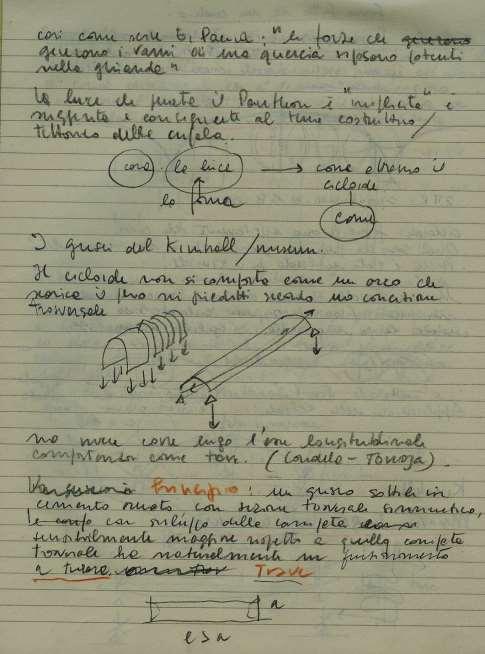 così come scrive E. Panda: "le forze che
generano i rami di una quercia riposano latenti
nella ghianda"
la luce che penetra il Pantheon è "implicita" è
suggerita e conseguente al tema costruttivo/
tettonico della cupola.
cosa la luce → come otteniamo il
cicloide
la forma
come
I gusci del Kimbell/museum.
Il cicloide non si comporta come un arco che
scarica il peso sui piedritti secondo una concezione
trasversale
ma invece corre lungo l'asse longitudinale
comportandosi come trave. (Candela - Torroja).
Principio: un guscio sottile in
cemento armato con sezione trasversale simmetrica,
con sviluppo della campata
sensibilmente maggiore rispetto a quella campata
trasversale ha naturalmente un funzionamento
a trave Trave
a
l > a